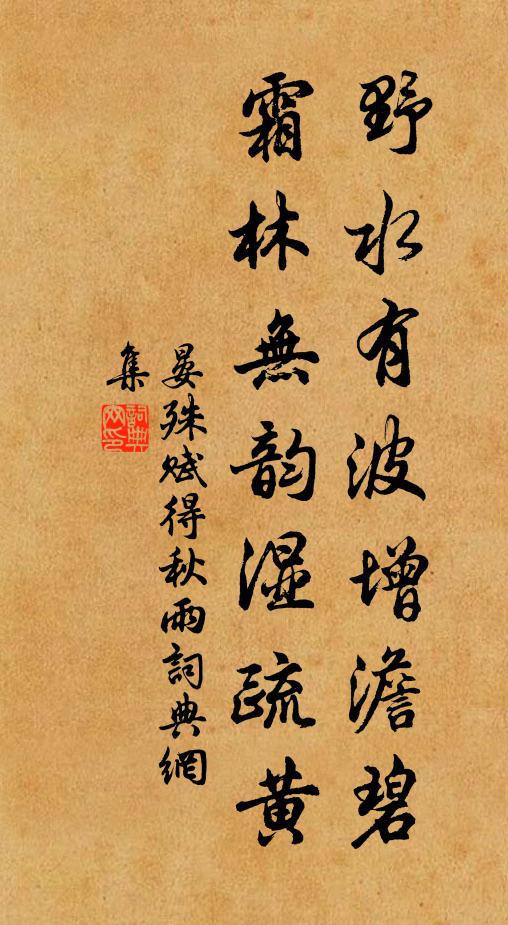 野水有波增澹碧
霜林無韵濕疏黄
晏殊賦得秋雨詞典網
集
詞典網印